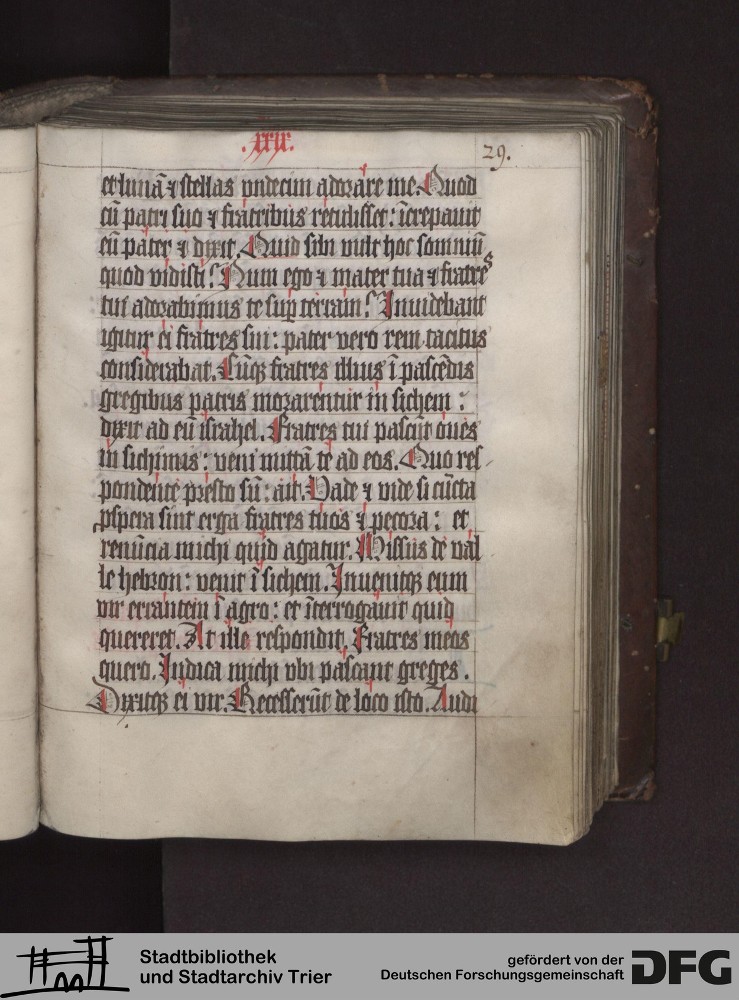 .xxix.
29.
et lunā ⁊ stellas vndecim adorare me. Quod
cū patri suo ⁊ fratribus retulisset: īcrepauit
eū pater ⁊ dixit. Quid sibi vult hoc somniū
quod vidisti? Num ego ⁊ mater tua ⁊ fratres
tui adorabimus te sup terram? Inuidebant
igitur ei fratres sui: pater vero rem tacitus
considerabat. Cūqꝫ fratres illius ī pascēdis
gregibus patris morarentur in sichem:
dixit ad eū israhel. Fratres tui pascūt oues
in sichimis: veni mittā te ad eos. Quo res
pondente presto sū: ait. Vade ⁊ vide si cūcta
ꝓspera sint erga fratres tuos ⁊ pecora: et
renūcia michi quid agatur. Missus de val
le hebron: venit ī sichem. Inuenitqꝫ eum
vir errantem ī agro: et īterrogauit quid
quereret. At ille respondit. Fratres meos
quero. Indica michi vbi pascant greges.
Dixitqꝫ ei vir. Recesserūt de loco isto. Audi
Stadtbibliothek
und Stadtarchiv Trier
gefördert von der
Deutschen Forschungsgemeinschaft
DFG